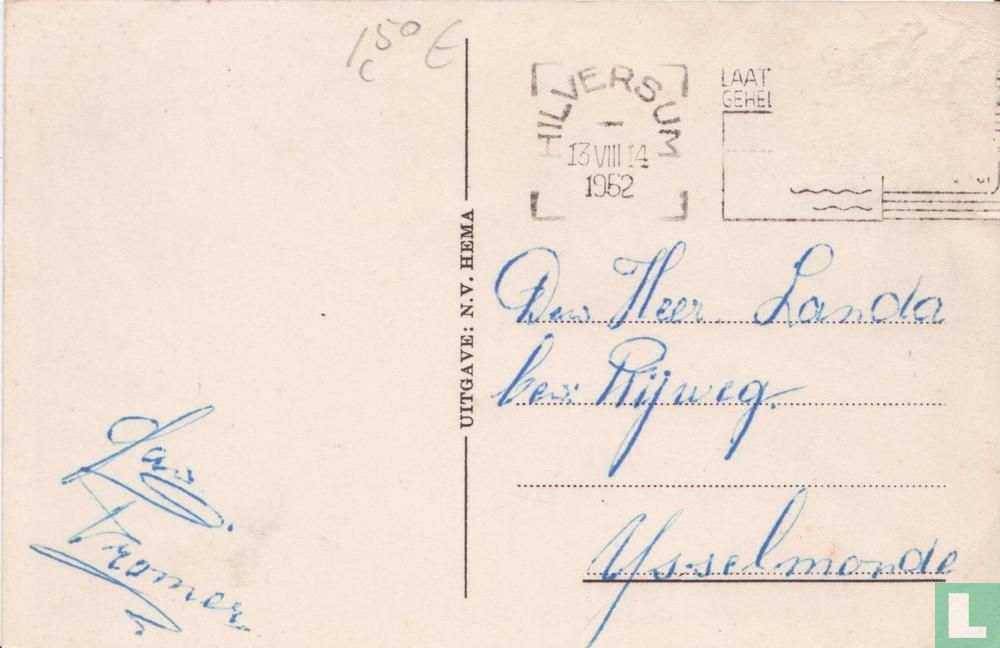 1 50 €
c
HILVERSUM
13 VIII 14
1952
LAAT
GEHEL
UITGAVE: N.V. HEMA
Den Heer. Landa
bew: Rijweg.
Ysselmonde
Kromer
L